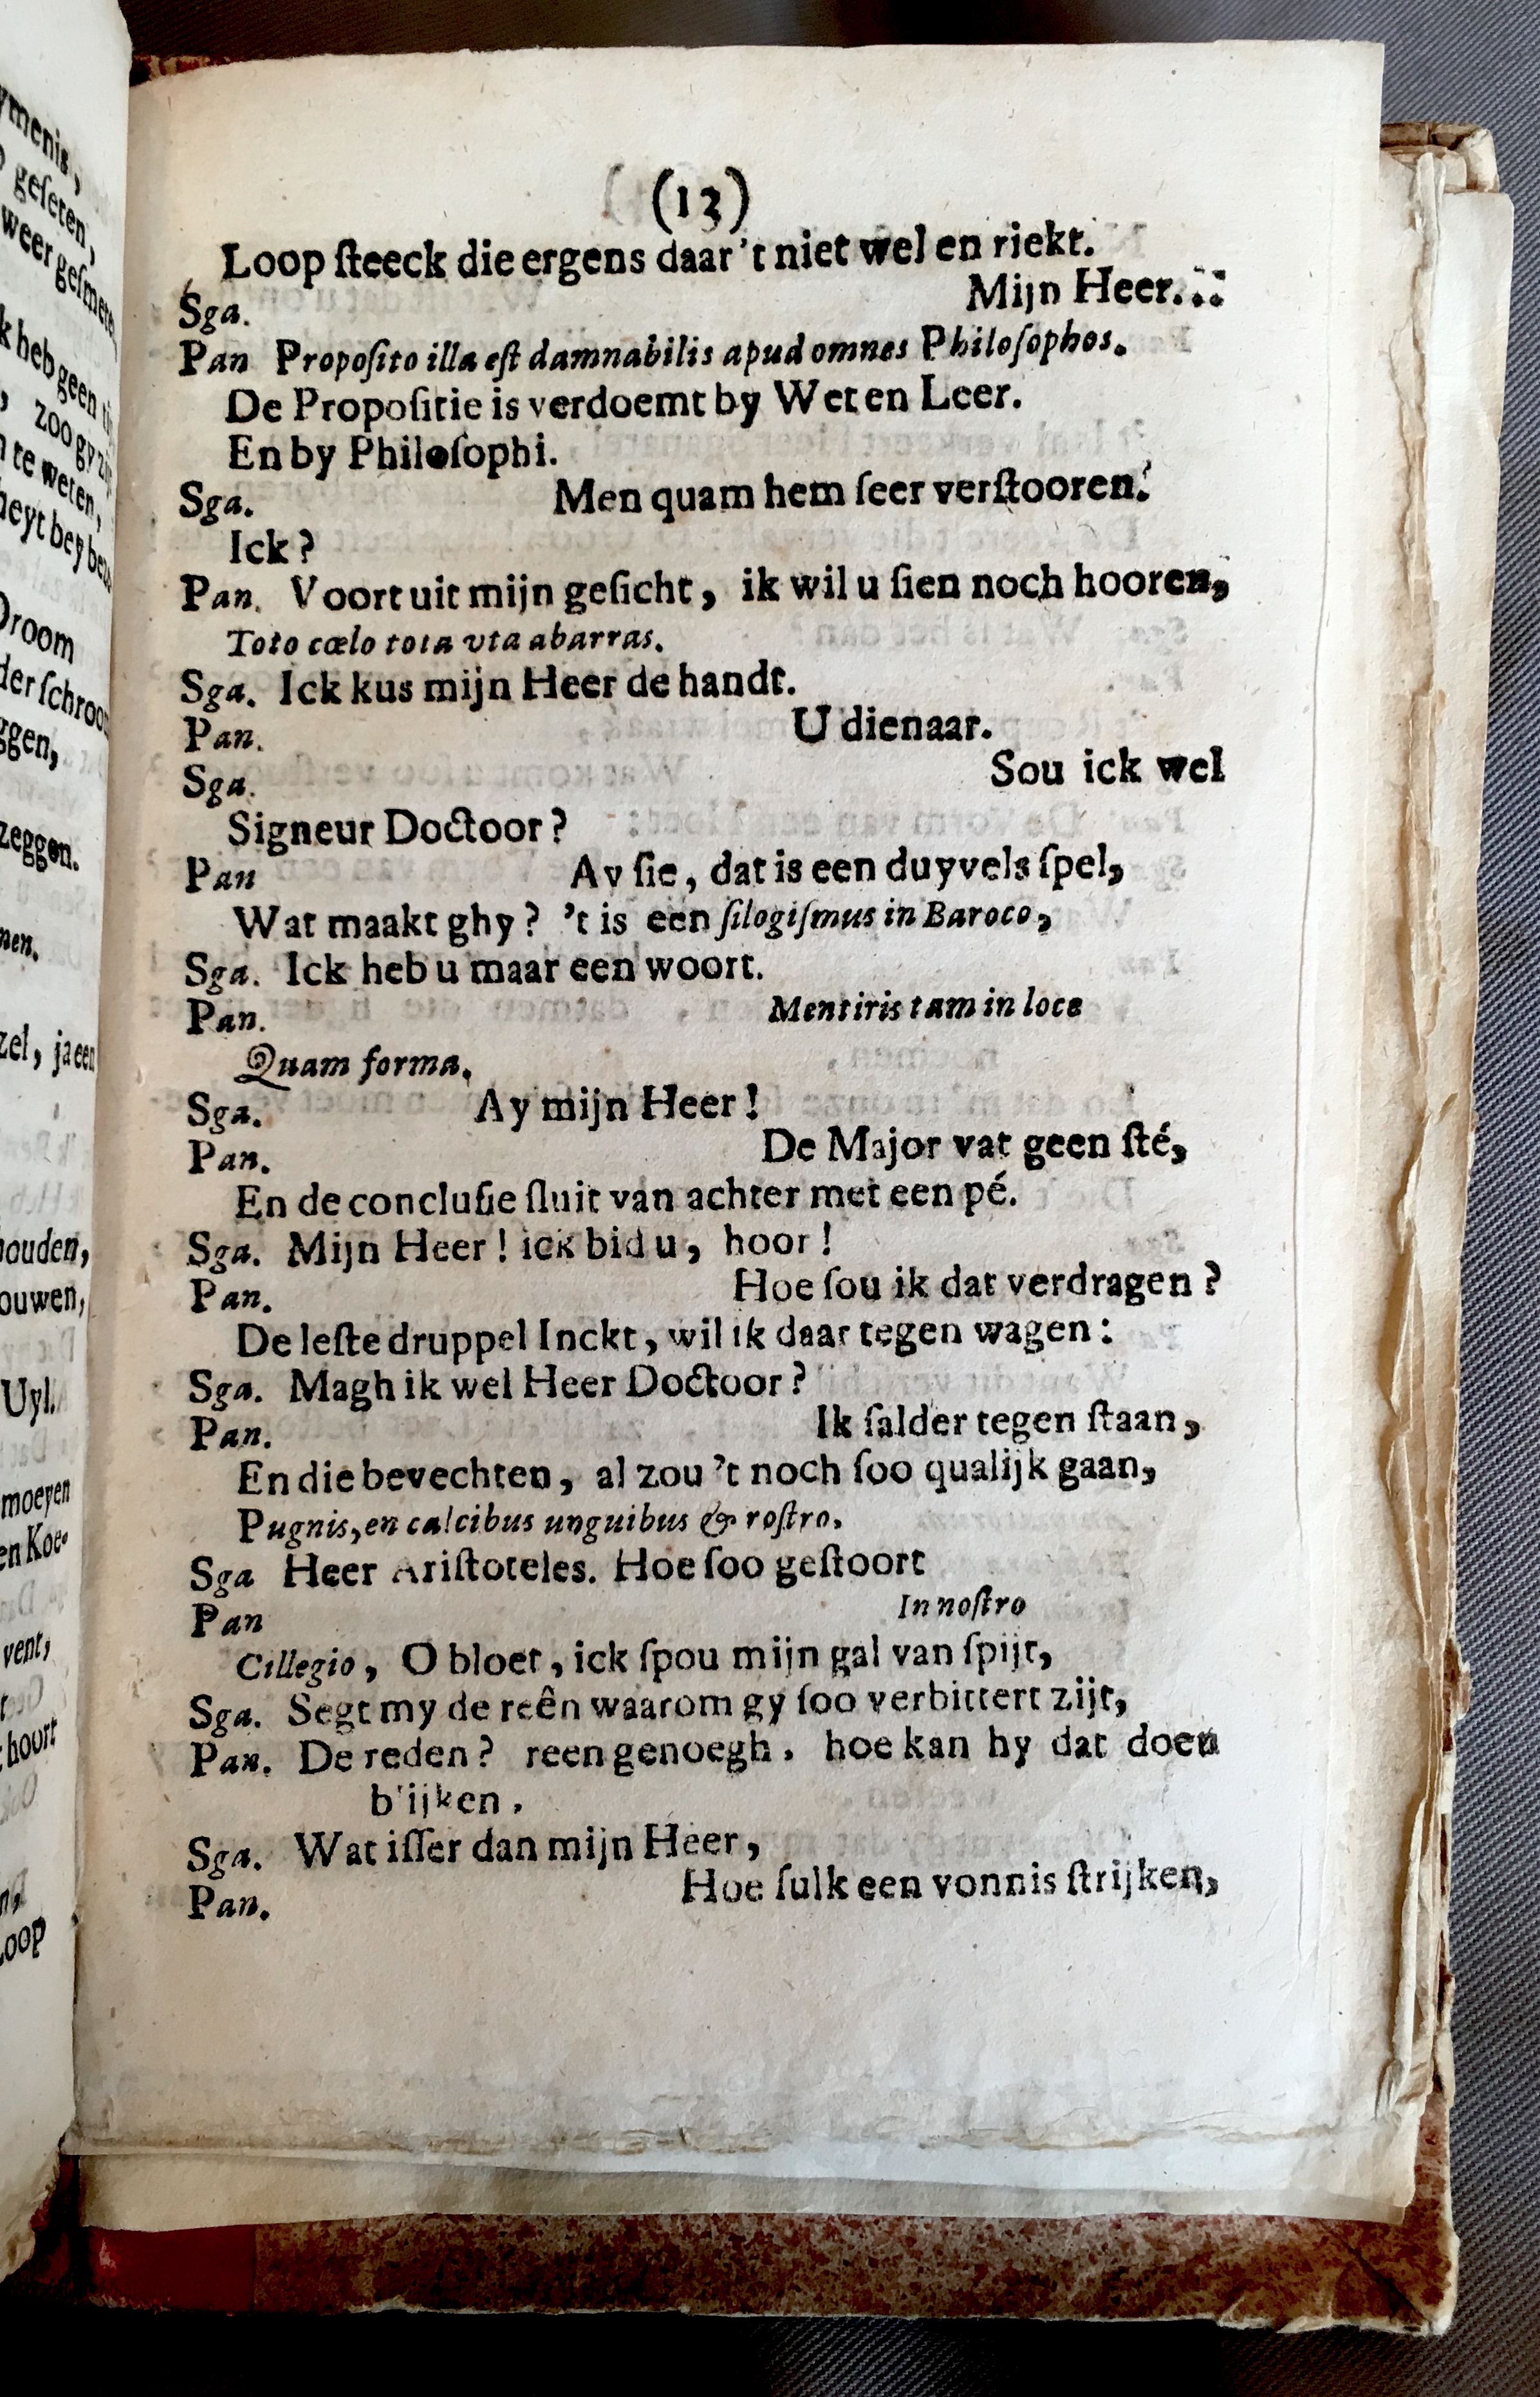 ymenis,
geſeten,
weer geſmete
k heb geen
zoo gy
te weten,
heyt bey
Droom
der ſchroo
ggen,
zeggen.
nen.
zel, ja een
houden,
ouwen,
Uyl.
moeyen
en Koe-
vent,
hoort
Loop
(13)
Loop ſteeck die ergens daar 't niet wel en riekt.
Sga. Mijn Heer...
Pan Propoſito illa eſt damnabilis apud omnes Philoſophos.
De Propoſitie is verdoemt by Wet en Leer.
En by Philoſophi.
Sga. Men quam hem ſeer verſtooren.
Ick?
Pan. Voort uit mijn geſicht, ik wil u ſien noch hooren,
Toto cœlo tota vta abarras.
Sga. Ick kus mijn Heer de handt.
Pan. U dienaar.
Sga. Sou ick wel
Signeur Doctoor?
Pan Ay ſie, dat is een duyvels ſpel,
Wat maakt ghy? 't is een ſilogiſmus in Baroco,
Sga. Ick heb u maar een woort.
Pan. Mentiris tam in loce
Quam forma.
Sga. Ay mijn Heer!
Pan. De Major vat geen ſté,
En de concluſie ſluit van achter met een pé.
Sga. Mijn Heer! ick bid u, hoor!
Pan. Hoe ſou ik dat verdragen?
De leſte druppel Inckt, wil ik daar tegen wagen:
Sga. Magh ik wel Heer Doctoor?
Pan. Ik ſalder tegen ſtaan,
En die bevechten, al zou 't noch ſoo qualijk gaan,
Pugnis, en calcibus unguibus & roſtro.
Sga Heer Ariſtoteles. Hoe ſoo geſtoort
Pan In noſtro
Cillegio, O bloet, ick ſpou mijn gal van ſpijt,
Sga. Segt my de reên waarom gy ſoo verbittert zijt,
Pan. De reden? reen genoegh. hoe kan hy dat doen
b'ijken.
Sga. Wat iſſer dan mijn Heer,
Pan. Hoe ſulk een vonnis ſtrijken,